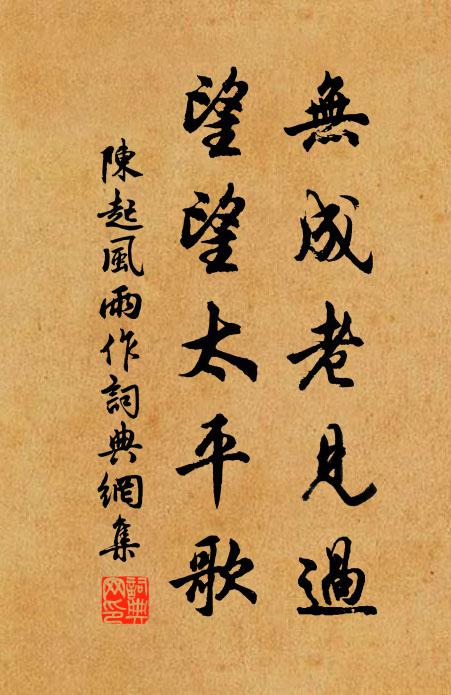 無成老見過
望望太平歌
陳起風雨作詞典網集
詞典網印